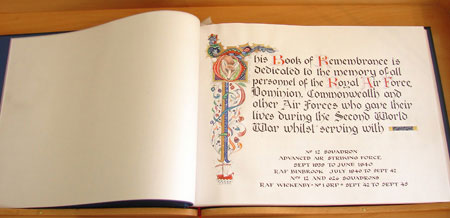 This Book of Remembrance is
dedicated to the memory of all
personnel of the Royal Air Force,
Dominion, Commonwealth and
other Air Forces who gave their
lives during the Second World
War whilst serving with
No 12 SQUADRON
ADVANCED AIR STRIKING FORCE
SEPT 1939 TO JUNE 1940
RAF BINBROOK JULY 1940 TO SEPT 42
Nos 12 AND 626 SQUADRONS
RAF WICKENBY • No 1 GRP • SEPT 42 TO SEPT 45